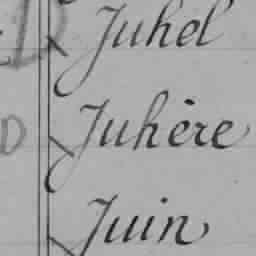 Juhel
D
Juhère
Juin